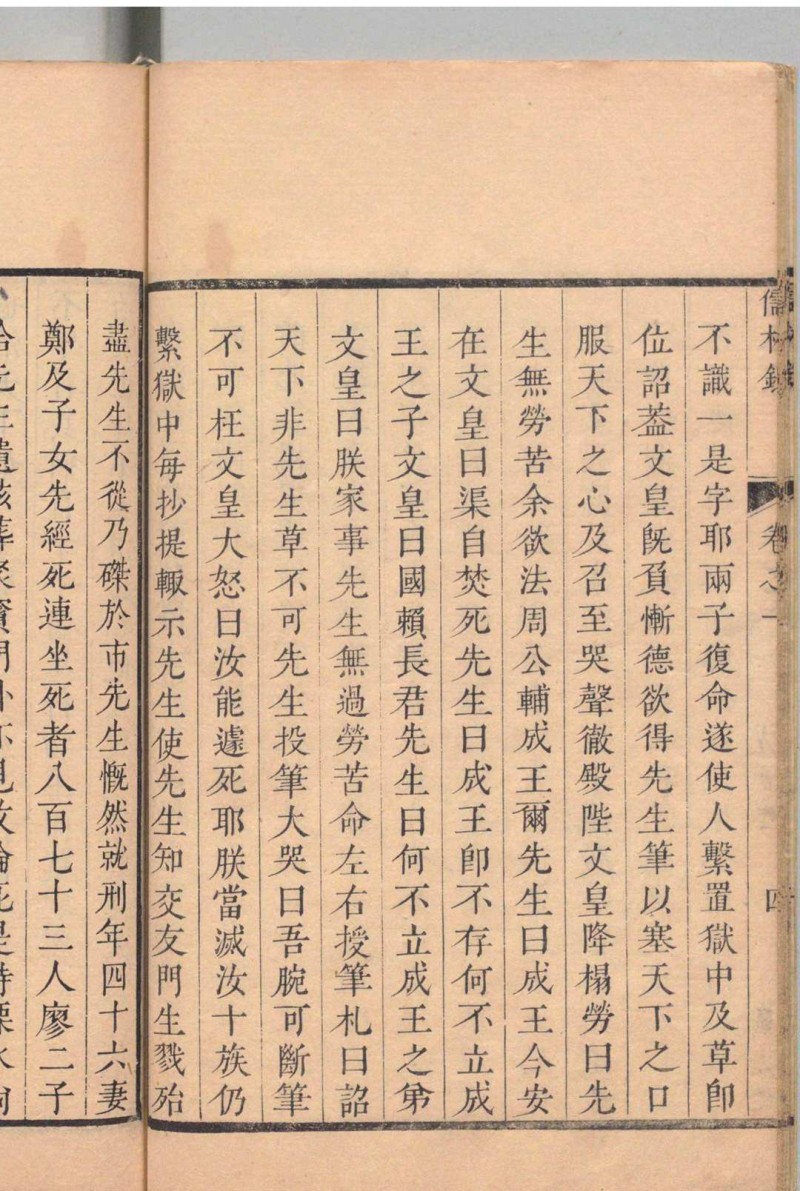 儒林錄 卷之一 四
不識一是字耶兩子復命遂使人繫置獄中及草卽
位詔葢文皇旣負慚德欲得先生筆以塞天下之口
服天下之心及召至哭聲徹殿陛文皇降榻勞曰先
生無勞苦余欲法周公輔成王爾先生曰成王今安
在文皇曰渠自焚死先生曰成王卽不存何不立成
王之子文皇曰國賴長君先生曰何不立成王之弟
文皇曰朕家事先生無過勞苦命左右授筆札曰詔
天下非先生草不可先生投筆大哭曰吾腕可斷筆
不可枉文皇大怒曰汝能遽死耶朕當滅汝十族仍
繫獄中每抄提輙示先生使先生知交友門生戮殆
盡先生不從乃磔於市先生慨然就刑年四十六妻
鄭及子女先經死連坐死者八百七十三人廖二子